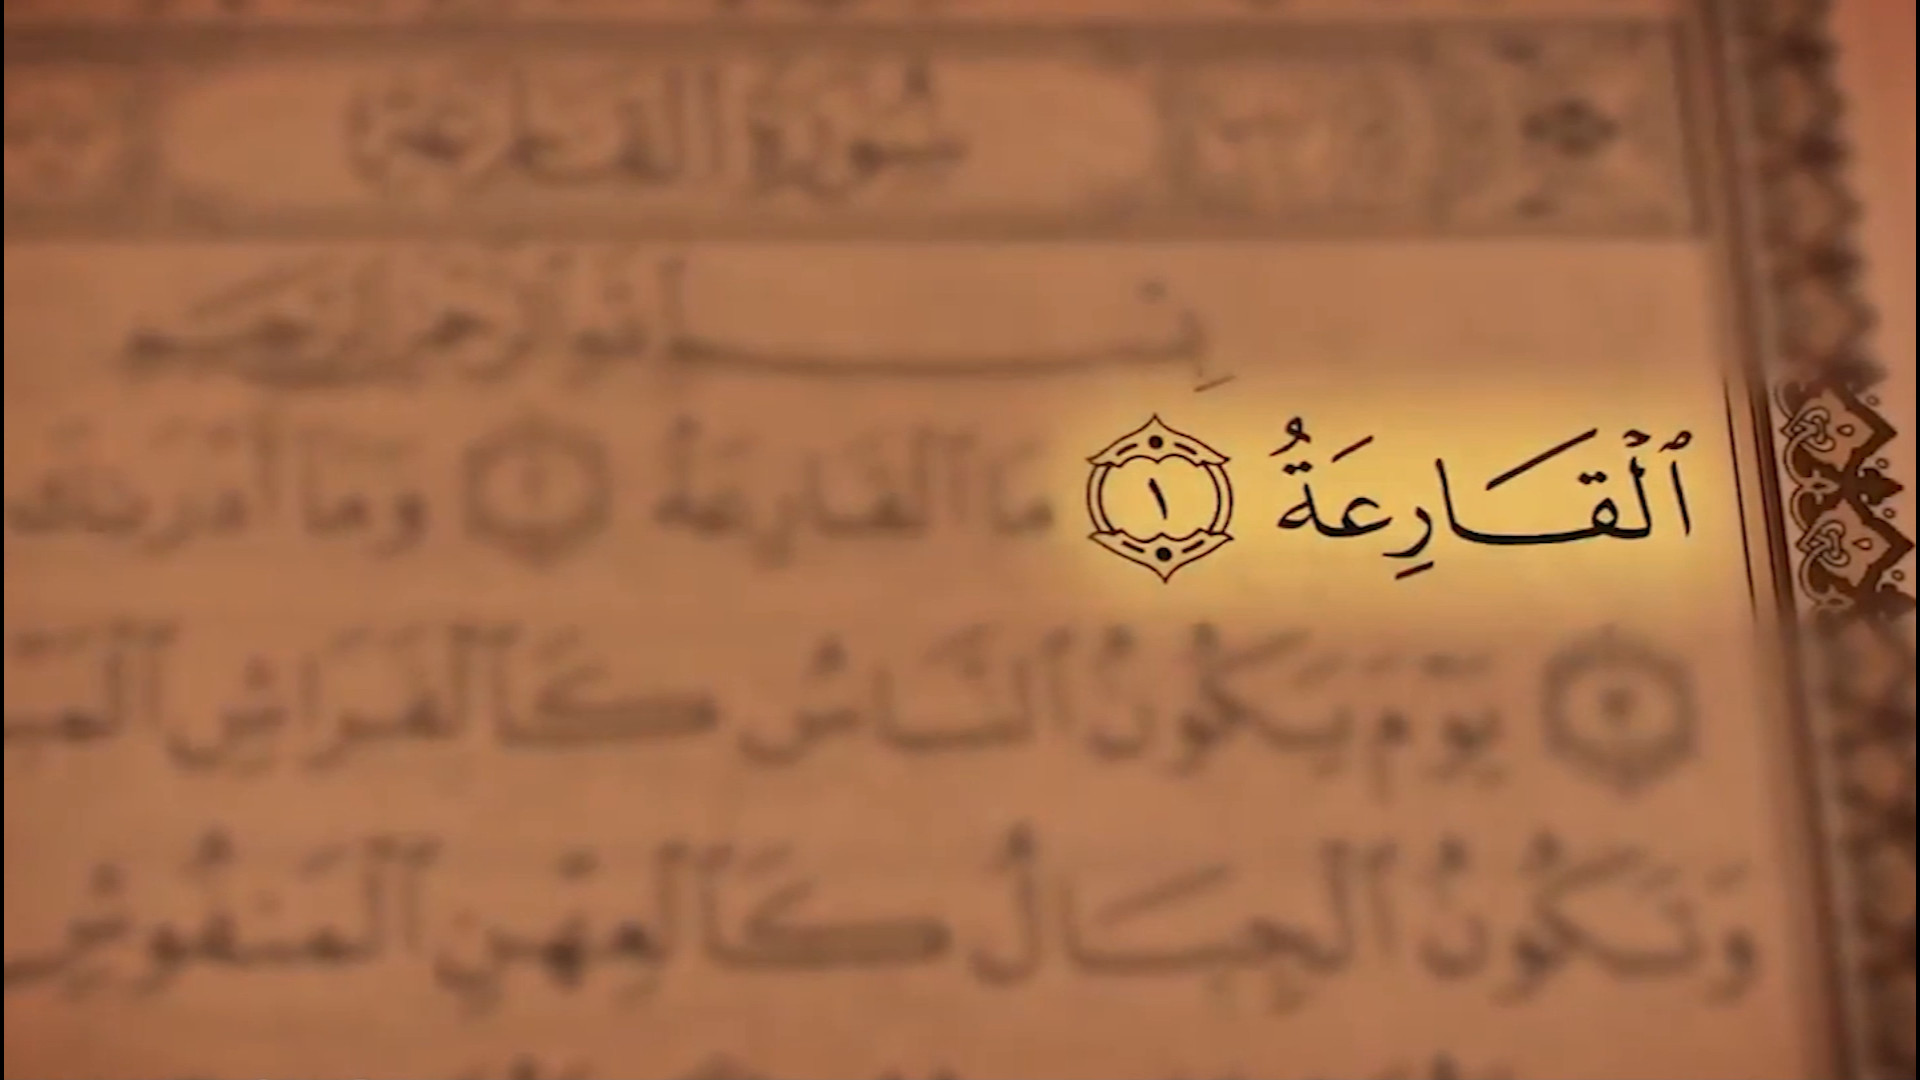 سورة القارعة
بِسْمِ ٱللَّهِ ٱلرَّحْمَٰنِ ٱلرَّحِيمِ
ٱلْقَارِعَةُ ١ مَا ٱلْقَارِعَةُ ٢ وَمَآ أَدْرَىٰكَ
٣ يَوْمَ يَكُونُ ٱلنَّاسُ كَٱلْفَرَاشِ
وَتَكُونُ ٱلْجِبَالُ كَٱلْعِهْنِ ٱلْمَنفُوشِ